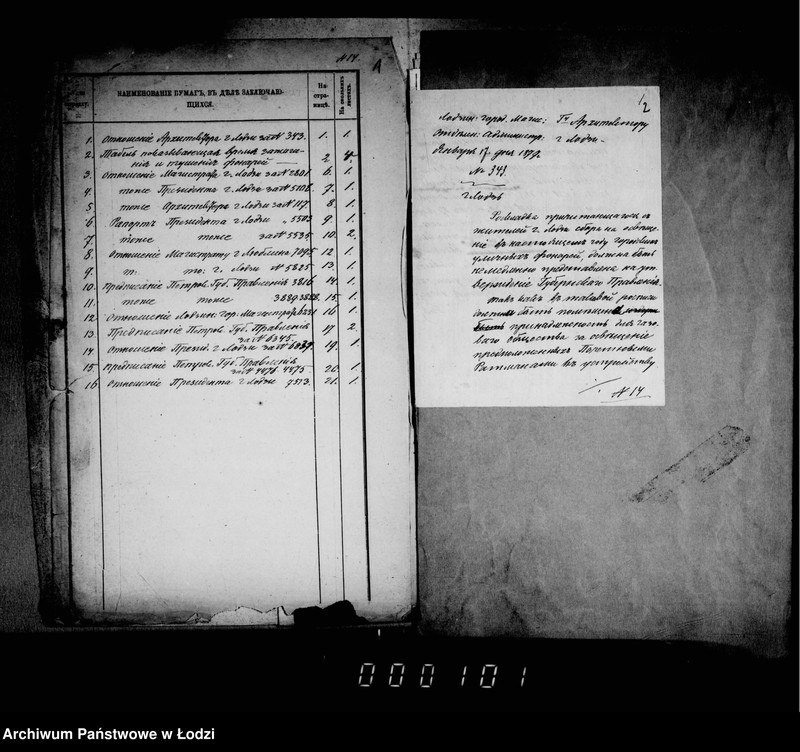 N 14.
1
НАИМЕНОВАНІЕ БУМАГЪ, ВЪ ДѢЛѢ ЗАКЛЮЧАЮ-
ЩИХСЯ.
На
стра-
ницѣ.
1. Отношеніе Архитектора г Лодзи за N 343. 1. 1.
2. Табель показывающая время зажига-
нія и тушенія фонарей 2 4.
3. Отношеніе Магистрата г Лодзи за N 2801 6. 1.
4. тоже Президента г Лодзи за N 5108 7. 1.
5 тоже Архитектора г Лодзи за N 117. 8. 1.
6. Рапортъ Президента г Лодзи " 5503 9. 1.
7. тоже тоже за N 5535. 10. 2.
8. Отношеніе Магистрату г Люблина 7095 12. 1.
9. т. то: г. Лодзи N 5825 13. 1.
10. Предписаніе Петров. Губ. Правленія 3816 14. 1.
11. тоже тоже 3889. 15. 1.
12. Отношеніе Лодзин: Гор. Магистрата 16 1.
13. Предписаніе Петров. Губ. Правленія 17 2.
за N 6345.
14. Отношеніе Презид. г Лодзи за N 19. 1.
15. Предписаніе Петров. Губ. Правленія
за N 4476. 4475 20. 1.
16. Отношеніе Президента г Лодзи 7513. 21. 1.
2
Лодзин: город. Магис: Гну Архитектору
Отдѣлн: Администр: г Лодзи.
Января 17 дня 1879.
No 341.
г Лодзь
Раскладка причитающагося съ
жителей г. Лодзи сбора на освѣще-
ніе въ настоящемъ году городскихъ
уличныхъ фонарей, должна быть
немедленно представлена на ут-
вержденіе Губернскаго Правленія.
такъ какъ въ таковой
быть
принадлежность для газо-
ваго общества за освѣщеніе
предположенныхъ
Ратманами къ устройству
N 14
000101
Archiwum Państwowe w Łodzi